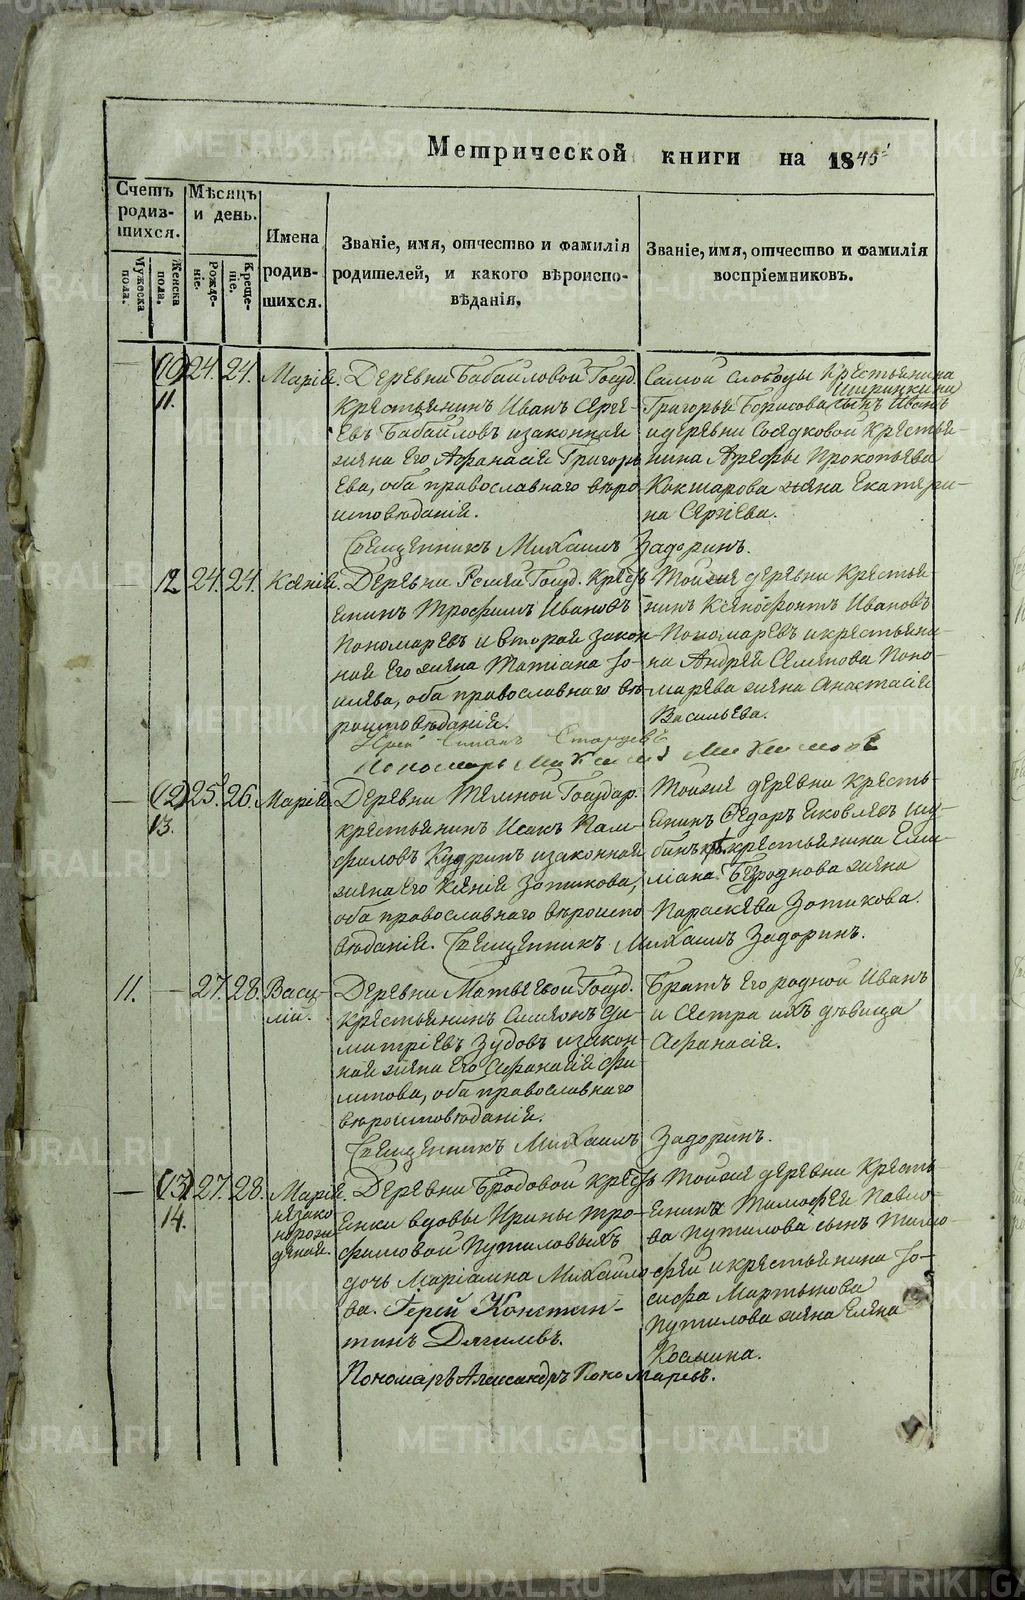 Метрической книги на 1845
Счетъ родив-шихся.
Мужеска пола.
Женска пола.
Мѣсяцъ и день.
Рожде-ніе.
Креще-ніе.
Имена родив-шихся.
Званіе, имя, отчество и фамилія родителей, и какого вѣроиспо-вѣданія,
Званіе, имя, отчество и фамилія воспріемниковъ.
(10) 24. 24. Марія.
11.
Деревни Бабайловой Госуд.
крестьянинъ Иванъ Сергѣ-
евъ Бабайловъ изаконная
жена его Афанасія Григорь
ева, оба православнаго вѣро
исповѣданія.
Самой слободы Крестьянина
Григорья Борисова сынъ Иванъ
идеревни Сосядковой Крестья-
нина Арефы Прокопьева
Кокшарова жена Екатери-
на Сергіева.
Священникъ Михаилъ Задоринъ.
12 24. 24. Ксенія.
Деревни Госуд. Крест
янинъ Трофимъ Ивановъ
Пономаревъ и вторая закон-
ная его жена Татіана Іо-
влева, оба православнаго вѣ-
роисповѣданія.
Тойже деревни Крестья-
нинъ Ксенофонтъ Ивановъ
Пономаревъ икрестьяни-
на Андрея Семенова Поно-
марева жена Анастасія
Васильева.
Старцевъ
Пономарь
(12) 25. 26. Марія.
13.
Деревни Темной Государ.
крестьянинъ Исакъ Пам-
филовъ Кудринъ изаконная
жена его Ксенія Зотикова,
оба православнаго вѣроиспо
вѣданія. Священникъ Михаилъ Задоринъ.
Тойже деревни Кресть-
янинъ Ѳедоръ Яковлевъ Шу-
бинъ крестьянина Еми-
ліана Безроднова жена
Параскева Зотикова.
11. 27. 28. Васи-
лій.
Деревни Матвѣевой Госуд.
Крестьянинъ Симеонъ Ди-
митріевъ Зудовъ изакон-
ная жена его Афанасія Фи-
липова, оба православнаго
вѣроисповѣданія.
Братъ его родной Иванъ
и Сестра ихъ дѣвица
Афанасія.
Священникъ Михаилъ Задоринъ.
(13) 27. 28. Марія
14.
незако
норож
деная.
Деревни Бродовой Крест
янки вдовы Ирины Тро-
фимовой Путиловыхъ
дочь Маріамна Михайло
ва. Іерей Констан-
тинъ Дягилевъ.
Пономарь Александръ Пономаревъ.
Тойже деревни Кресть-
янинъ Тимофея Павло-
ва Путилова сынъ Тимо-
фей икрестьянина Іо-
сифа Мартынова
Путилова жена Елена
Космина.
METRIKI.GASO-URAL.RU